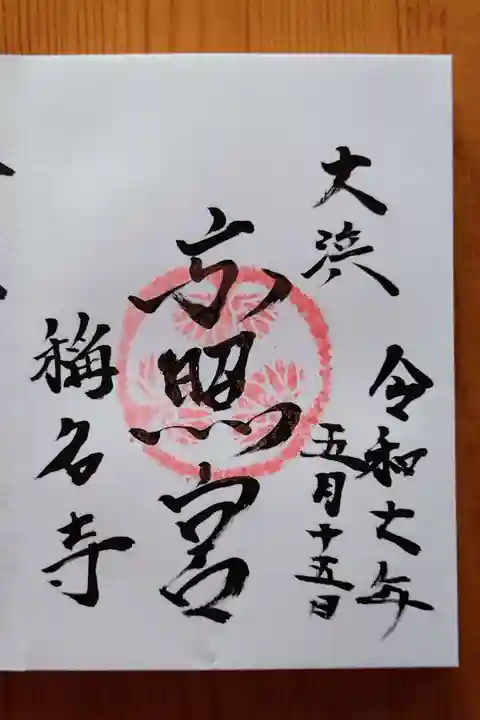 令和六年
五月十五日
大浜
東照宮
稱名寺